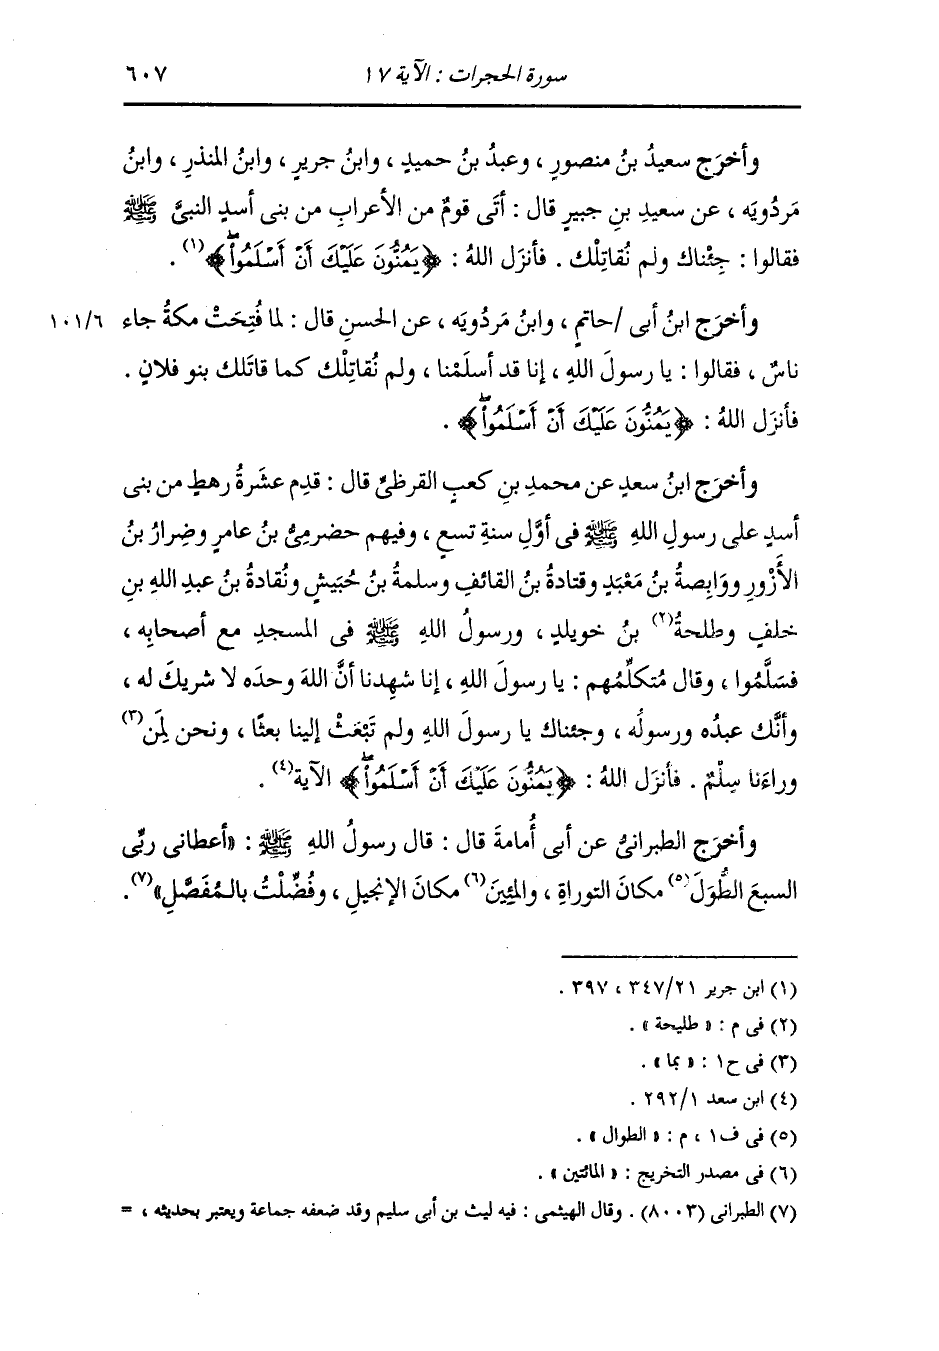 سورة الحجرات : الآية ١٧ ٦٠٧
وأخرَج سعيدُ بنُ منصورٍ ، وعبدُ بنُ حميدٍ ، وابنُ جريرٍ ، وابنُ المنذرِ ، وابنُ
مَردُويَه ، عن سعيدِ بنِ جبيرٍ قال : أتَى قومٌ من الأعرابِ من بنى أسدٍ النبىَّ ﷺ
فقالوا : جِئْناك ولم نُقاتِلْك . فأنزَل اللهُ : ﴿يَمُنُّونَ عَلَيْكَ أَنْ أَسْلَمُواْۖ﴾(١) .
وأخرَج ابنُ أبى /حاتمٍ ، وابنُ مَردُويَه ، عن الحسنِ قال : لما فُتِحَتْ مكةُ جاء ١٠١/٦
ناسٌ ، فقالوا : يا رسولَ اللهِ ، إنا قد أسلَمْنا ، ولم نُقاتِلْك كما قاتَلك بنو فلانٍ .
فأنزَل اللهُ : ﴿يَمُنُّونَ عَلَيْكَ أَنْ أَسْلَمُواْۖ﴾ .
وأخرَج ابنُ سعدٍ عن محمدِ بنِ كعبٍ القرظىِّ قال : قدِم عشَرةُ رهطٍ من بنى
أسدٍ على رسولِ اللهِ ﷺ فى أوَّلِ سنةِ تسعٍ ، وفيهم حضرمِىُّ بنُ عامرٍ وضِرارُ بنُ
الأَزْورِ ووَابِصةُ بنُ مَعْبَدٍ وقتادةُ بنُ القائفِ وسلمةُ بنُ حُبَيشٍ ونُقادةُ بنُ عبدِ اللهِ بنِ
خلفٍ وطلحةُ(٢) بنُ خويلدٍ ، ورسولُ اللهِ ﷺ فى المسجدِ مع أصحابِه ،
فسَلَّمُوا ، وقال مُتكلِّمُهم : يا رسولَ اللهِ ، إنا شهِدنا أنَّ اللهَ وحدَه لا شريكَ له ،
وأنَّك عبدُه ورسولُه ، وجئناك يا رسولَ اللهِ ولم تَبْعَثْ إلينا بعثًا ، ونحن لِمَن(٣)
وراءَنا سِلْمٌ . فأنزَل اللهُ : ﴿يَمُنُّونَ عَلَيْكَ أَنْ أَسْلَمُواْۖ﴾ الآية(٤) .
وأخرَج الطبرانىُّ عن أبى أُمامةَ قال : قال رسولُ اللهِ ﷺ : «أعطانى ربِّى
السبعَ الطُّوَلَ(٥) مكانَ التوراةِ ، والمِئِينَ(٦) مكانَ الإنجيلِ ، وفُضِّلْتُ بالمُفَصَّلِ»(٧).
(١) ابن جرير ٣٤٧/٢١ ، ٣٩٧ .
(٢) فى م : « طليحة » .
(٣) فى ح١ : « بما » .
(٤) ابن سعد ٢٩٢/١ .
(٥) فى ف١ ، م : « الطوال » .
(٦) فى مصدر التخريج : « المائتين » .
(٧) الطبرانى (٨٠٠٣) . وقال الهيثمى : فيه ليث بن أبى سليم وقد ضعفه جماعة ويعتبر بحديثه ، =